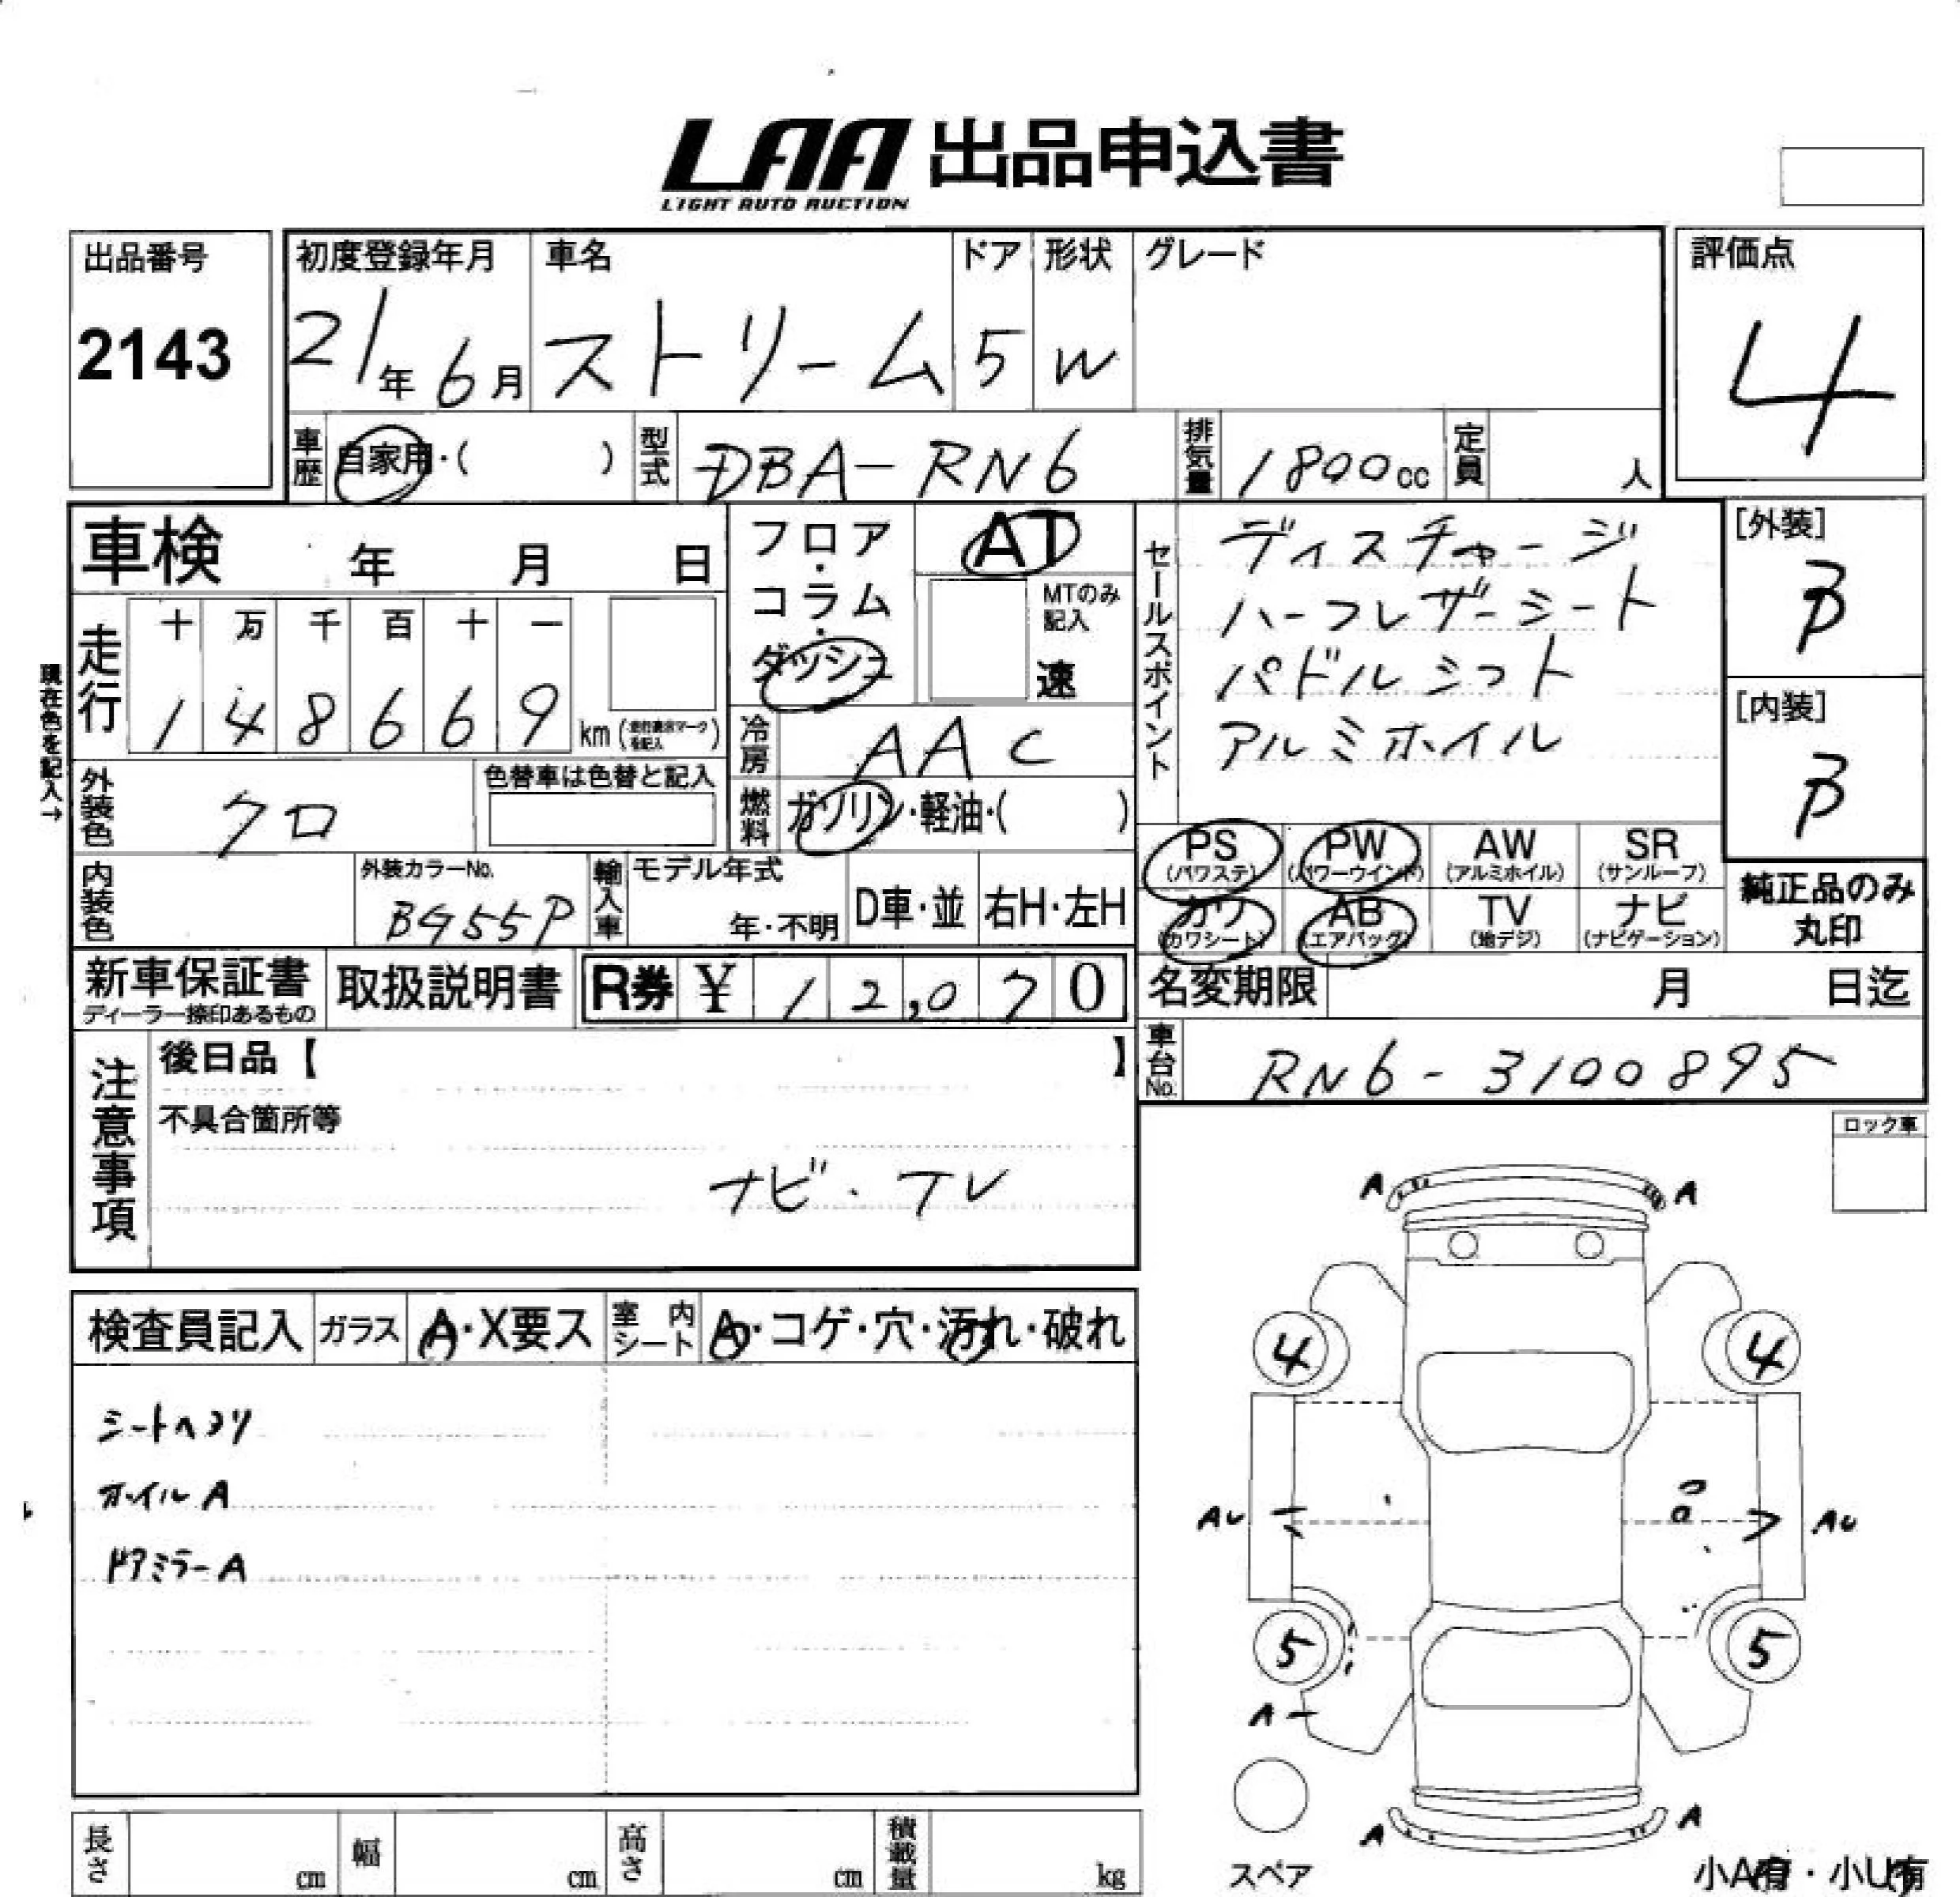 LAA 出品申込書
LIGHT AUTO AUCTION
出品番号
2143
初度登録年月 車名 ドア 形状 グレード
21年 6月 ストリーム 5 W
評価点
4
車歴 自家用・( ) 型式 DBA-RN6 排気量 1800cc 定員 人
車検 年 月 日
フロア・コラム・ダッシュ
AT
MTのみ記入
速
セールスポイント
ディスチャージ
ハーフレザーシート
パドルシフト
アルミホイル
[外装]
B
[内装]
B
現在色を記入→
走行
十 万 千 百 十 一
1 4 8 6 6 9 km
冷房 AAC
外装色 クロ
色替車は色替と記入
燃料 ガソリン・軽油・( )
PS (パワステ) PW (パワーウインド) AW (アルミホイル) SR (サンルーフ)
カワ (カワシート) AB (エアバッグ) TV (地デジ) ナビ (ナビゲーション)
純正品のみ
丸印
内装色
外装カラーNo.
B955P
輸入車 モデル年式
年・不明 D車・並 右H・左H
新車保証書
ディーラー捺印あるもの
取扱説明書 R券 ¥ 12,070
名変期限 月 日迄
車台No. RN6-3100895
注意事項
後日品【 】
不具合箇所等
ナビ・TV
ロック車
A A
検査員記入 ガラス A・X要ス 室内シート A・コゲ・穴・汚れ・破れ
シートヘタリ
ホイルA
ドアミラーA
4 4
AU AU
5 5
A
A A
スペア
小A有・小U有
長さ cm 幅 cm 高さ cm 積載量 kg